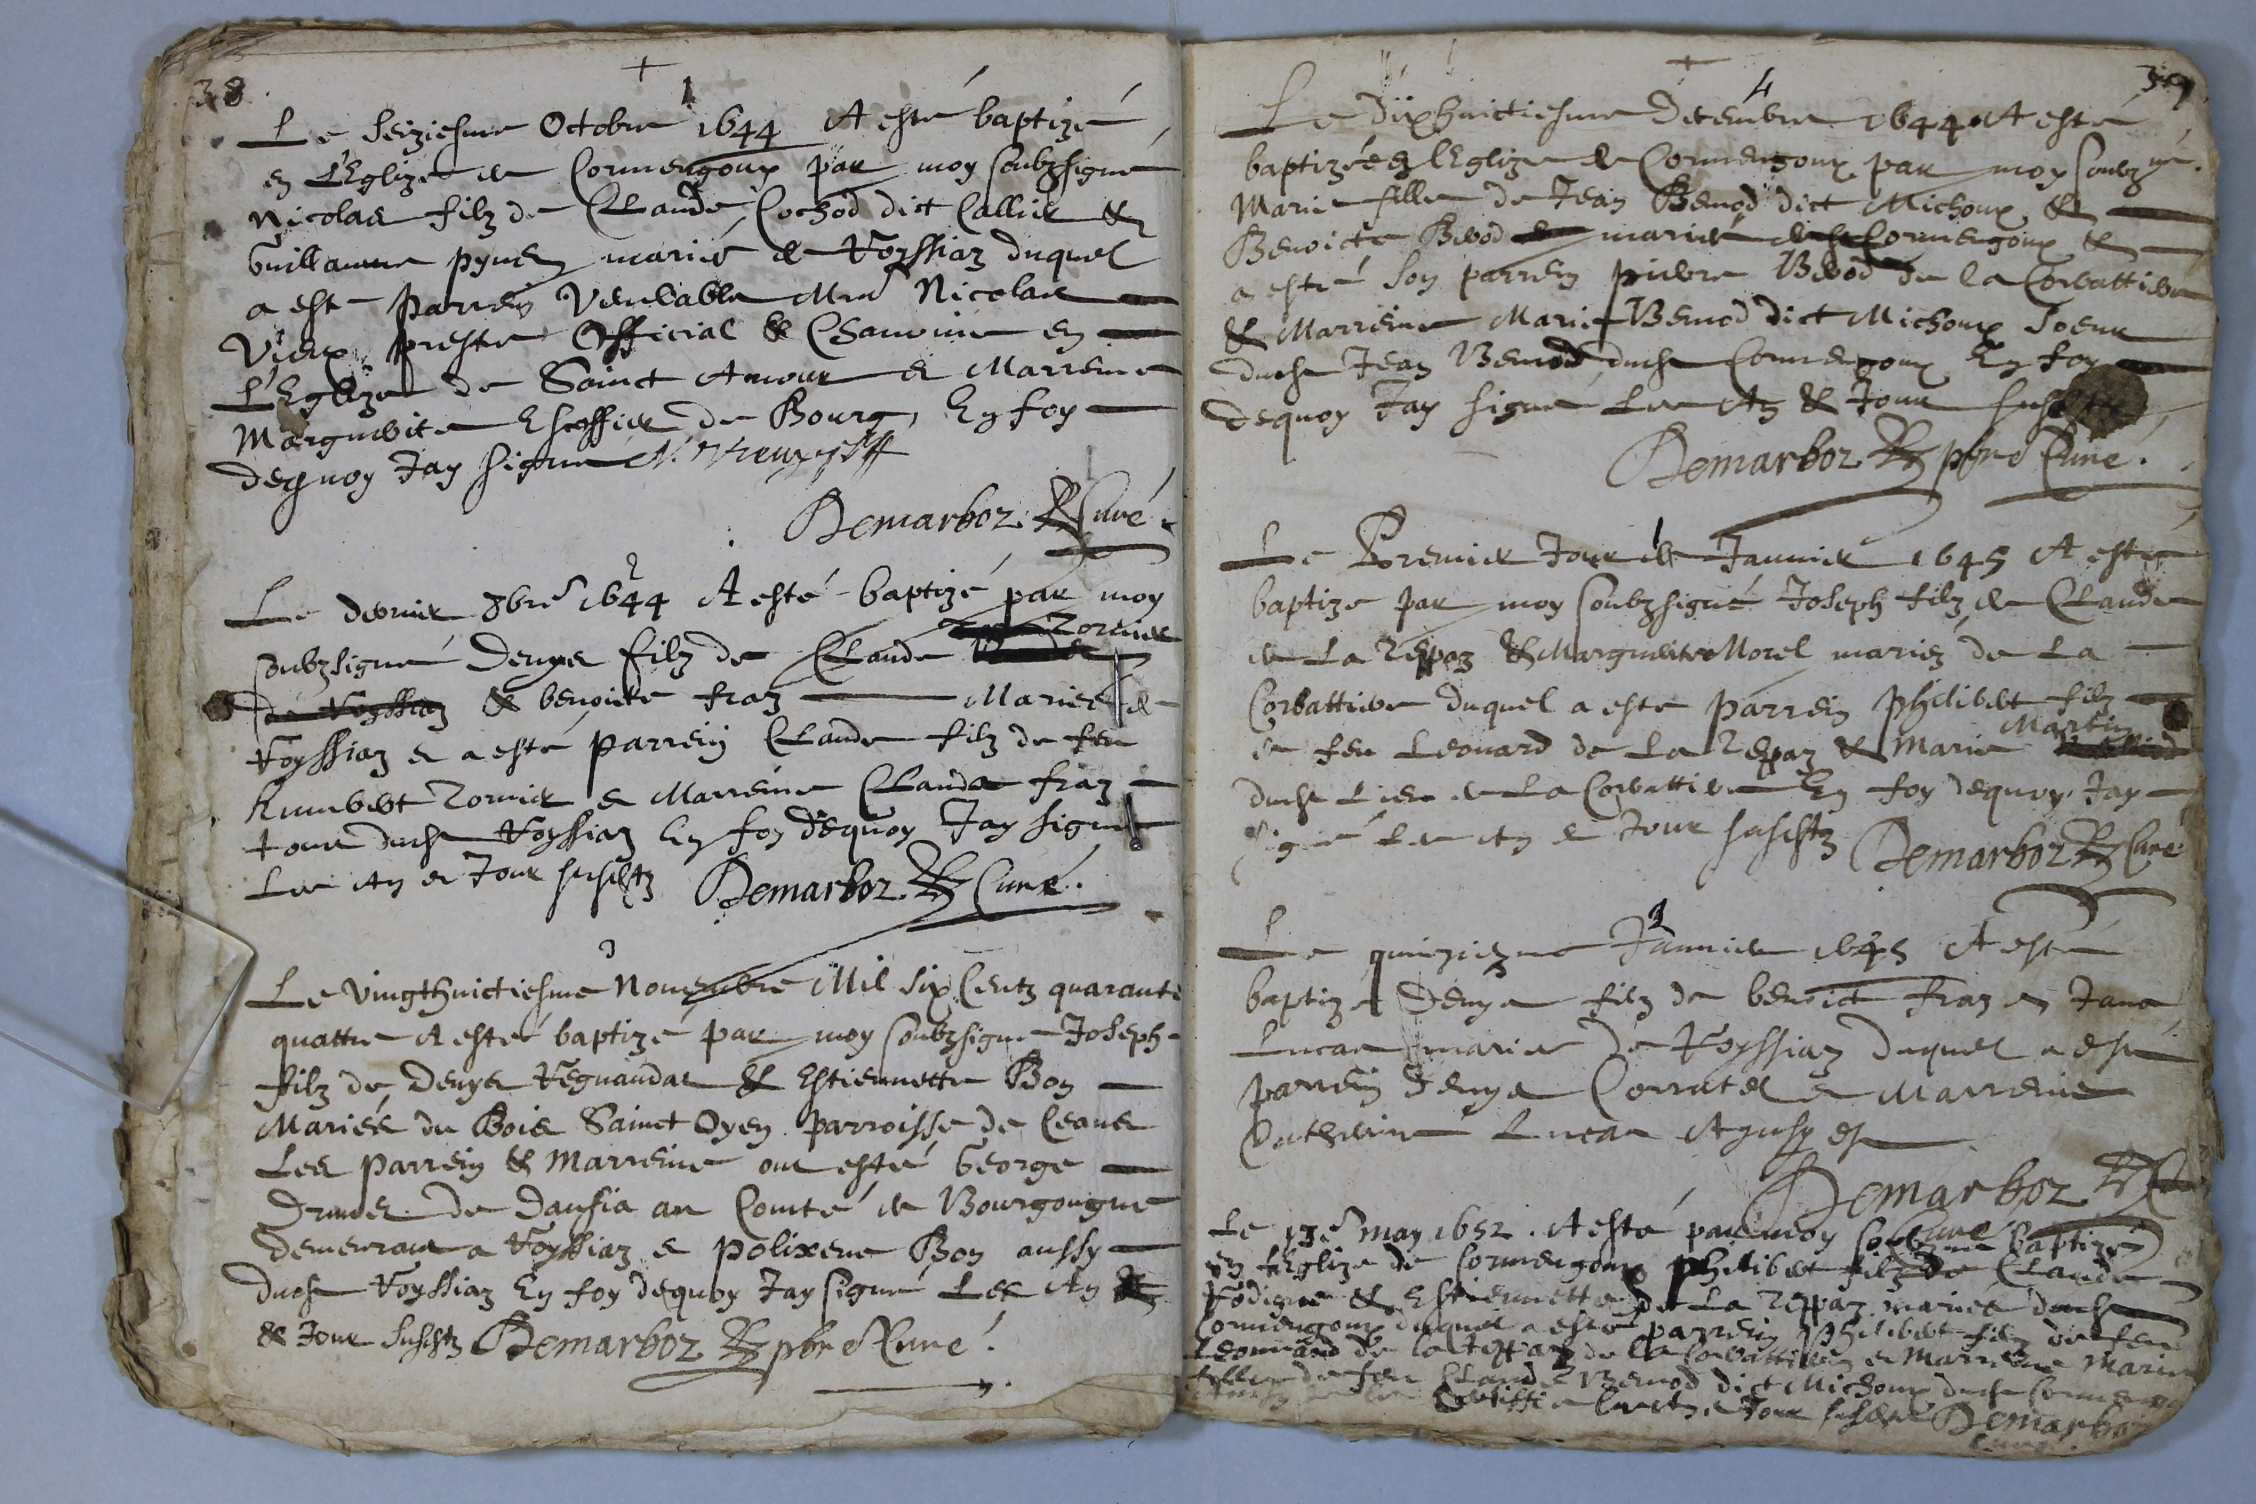 38
+
1
Le seiziesme Octobre 1644 A esté baptizé
en l'Eglize de Cormengoux par moy soubzsigné
Nicolas filz de Claude Cochod dict Callier &
Guillauma pynen mariés de Voyssiaz duquel
a esté Parrein Venerable Mre Nicolas
Vieux prestre Official & Chanoine en
L'Eglize de Sainct Amour et Marreine
Marguerite Escoffier de Bourg, En foy
dequoy Jay signé N. Vieux
Demarboz Curé
2
Le dernier 8bre 1644 A esté baptizé par moy
Zornier
soubzsigné Denys filz de Claude
de Voyssiaz & benoiste fraz Mariés de
Voyssiaz et a esté parrein Claude filz de feu
humbert Zornier et Marreine Clauda fraz
tous dudt Voyssiaz En foy dequoy Jay signé
Les An et Jour susdtz Demarboz Curé.
3
Le vingthuictiesme Nouembre Mil six Centz quarante
quattre A esté baptizé par moy soubzsigné Joseph
filz de Denys Regnaudat & Estiennette Bon
Mariés du Bois Sainct Oyen parroisse de Ceans
Les parrein & Marreine ont esté George
de Dansia au Comté de Bourgougne
demeurant a Voyssiaz et polixene Bon aussy
dudt Voyssiaz En foy dequoy Jay signé Les An
& Jour susdtz Demarboz pbre Curé.
39
+
4
Le dixhuictiesme décembre 1644 A esté
baptizée en l'Eglize de Cormengoux par moy soubzné
Marie fille de Jean Bernod dict Michoux &
Benoicte Brod mariés de Cormengoux &
a esté son parrein pierre Brod de la Corbattiere
& Marreine Marie Bernod dict Michoux soeur
dudt Jean Bernod dudt Cormengoux En foy
dequoy Jay signé Les An & Jour
Demarboz pbre Curé.
1
Le Premier Jour de Januier 1645 A esté
baptize par moy soubzsigné Joseph filz de Claude
de La Teppaz & Marguerite Morel mariéz de La
Corbattiere duquel a esté parrein philibert filz
Martin
de feu Leonard de La Teppaz & Marie
dudt Lieu de La Corbattiere En foy dequoy Jay
signé Les An et Jour susdtz Demarboz Curé
2
Le quinziezme Januier 1645 A esté
baptize Denys filz de benoict fraz et Jana
Lucas mariés de Voyssiaz duquel a esté
parrein Denys Corratel et Marreine
Catherine Lucas
Demarboz
Curé
Le 13e may 1652. A esté par moy soubzné baptizé
en l'Eglize de Cormengoux philibert filz de Claude
& Estiennette de La Teppaz mariés dudt
Cormengoux duquel a esté parrein philibert filz de feu
Leonnard de la teppaz de la Corbattiere et Marreine Marie
fille de feu Claude Bernod dict Michoux dudt
les An et Jour Demarboz
Curé